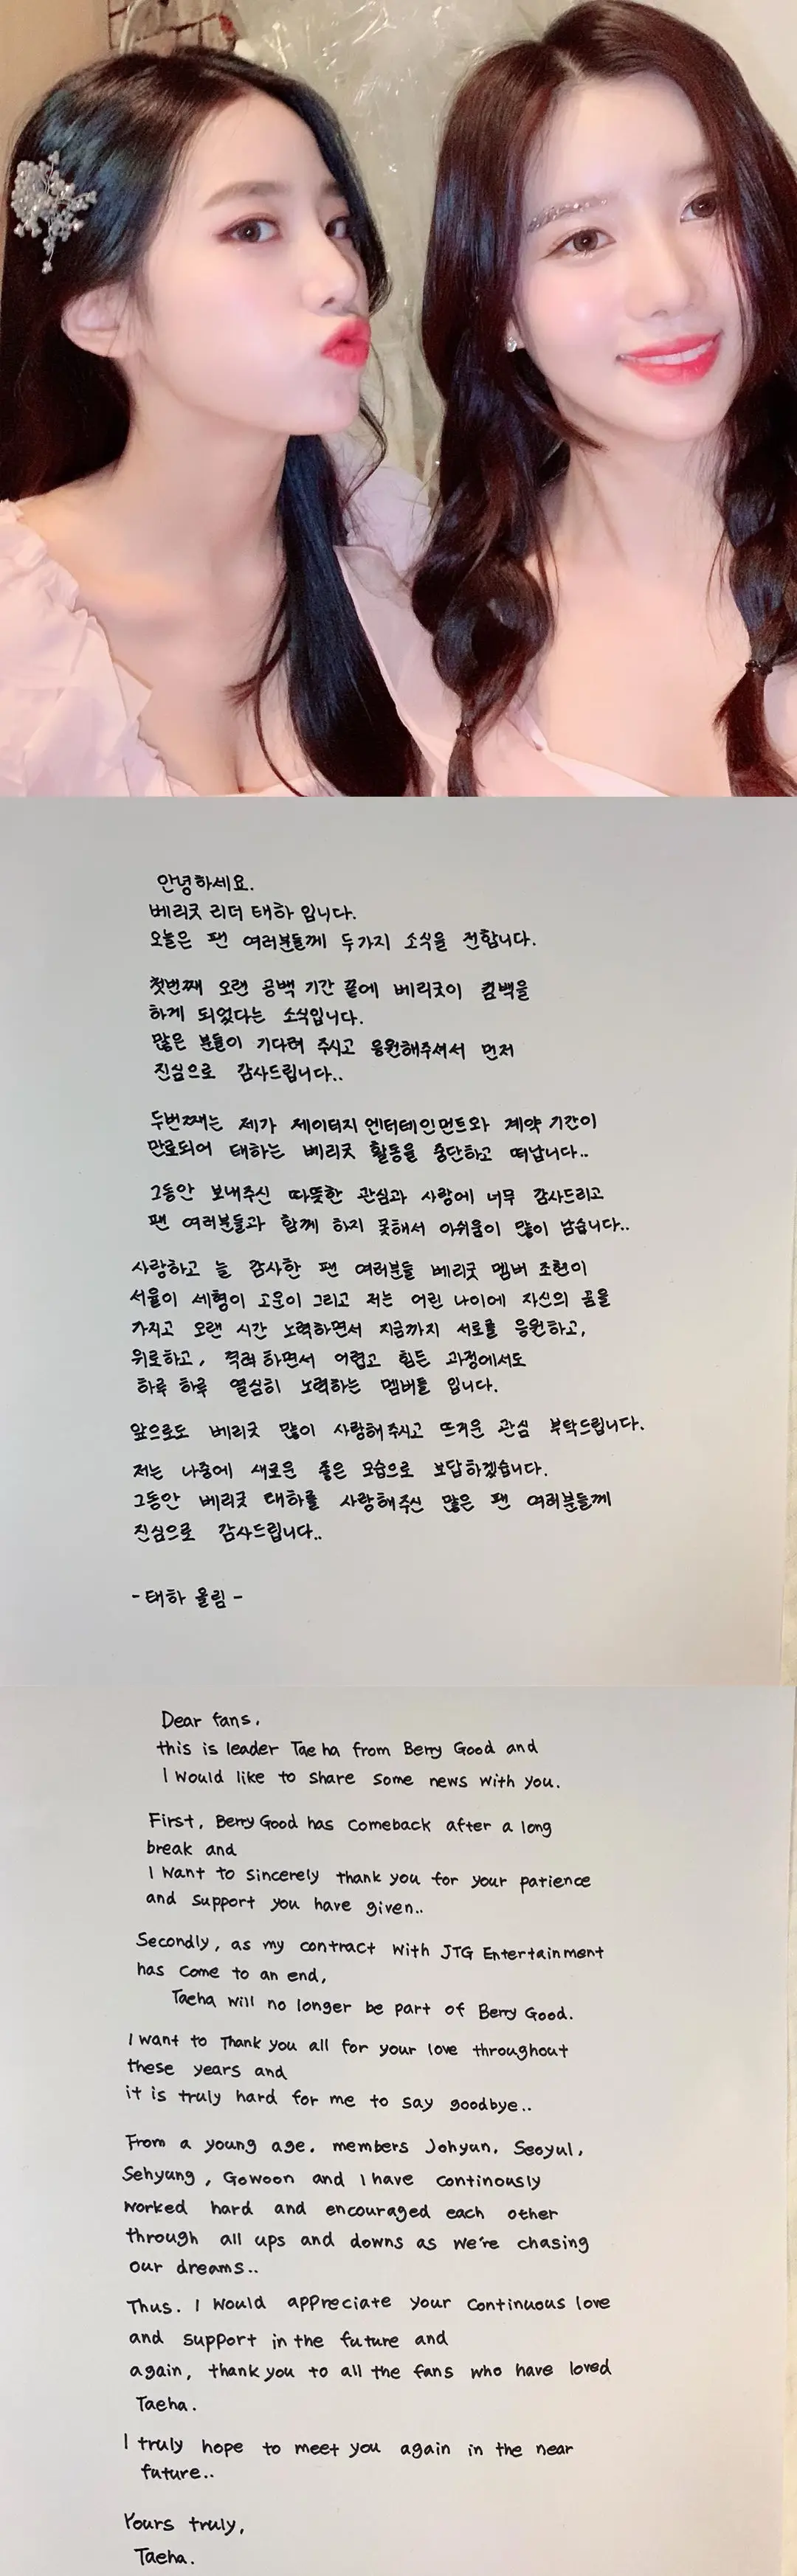 안녕하세요.
베리굿 리더 태하 입니다.
오늘은 팬 여러분들께 두가지 소식을 전합니다.
첫번째 오랜 공백 기간 끝에 베리굿이 컴백을
하게 되었다는 소식입니다.
많은 분들이 기다려 주시고 응원해주셔서 먼저
진심으로 감사드립니다..
두번째는 제가 제이티지 엔터테인먼트와 계약 기간이
만료되어 태하는 베리굿 활동을 중단하고 떠납니다..
그동안 보내주신 따뜻한 관심과 사랑에 너무 감사드리고
팬 여러분들과 함께 하지 못해서 아쉬움이 많이 남습니다..
사랑하고 늘 감사한 팬 여러분들 베리굿 멤버 조현이
서율이 세형이 고운이 그리고 저는 어린 나이에 자신의 꿈을
가지고 오랜 시간 노력하면서 지금까지 서로를 응원하고,
위로하고, 격려하면서 어렵고 힘든 과정에서도
하루 하루 열심히 노력하는 멤버들 입니다.
앞으로도 베리굿 많이 사랑해주시고 뜨거운 관심 부탁드립니다.
저는 나중에 새로운 좋은 모습으로 보답하겠습니다.
그동안 베리굿 태하를 사랑해주신 많은 팬 여러분들께
진심으로 감사드립니다..
- 태하 올림 -
Dear fans,
this is leader Taeha from Berry Good and
I would like to share some news with you.
First, Berry Good has comeback after a long
break and
I want to sincerely thank you for your patience
and support you have given..
Secondly, as my contract with JTG Entertainment
has come to an end,
Taeha will no longer be part of Berry Good.
I want to Thank you all for your love throughout
these years and
it is truly hard for me to say goodbye..
From a young age, members Johyun, Seoyul,
Sehyung, Gowoon and I have continously
worked hard and encouraged each other
through all ups and downs as we're chasing
our dreams..
Thus. I would appreciate your continuous love
and support in the future and
again, thank you to all the fans who have loved
Taeha.
I truly hope to meet you again in the near
future..
Yours truly,
Taeha.